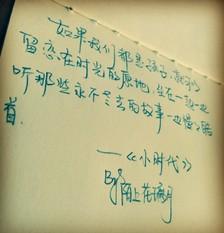 如果我们都是孩子,就可以
留恋在时光的原地,坐在一起一边
听那些永不老去的故事一边慢慢皓
首.
——《小时代》
By 陌上花